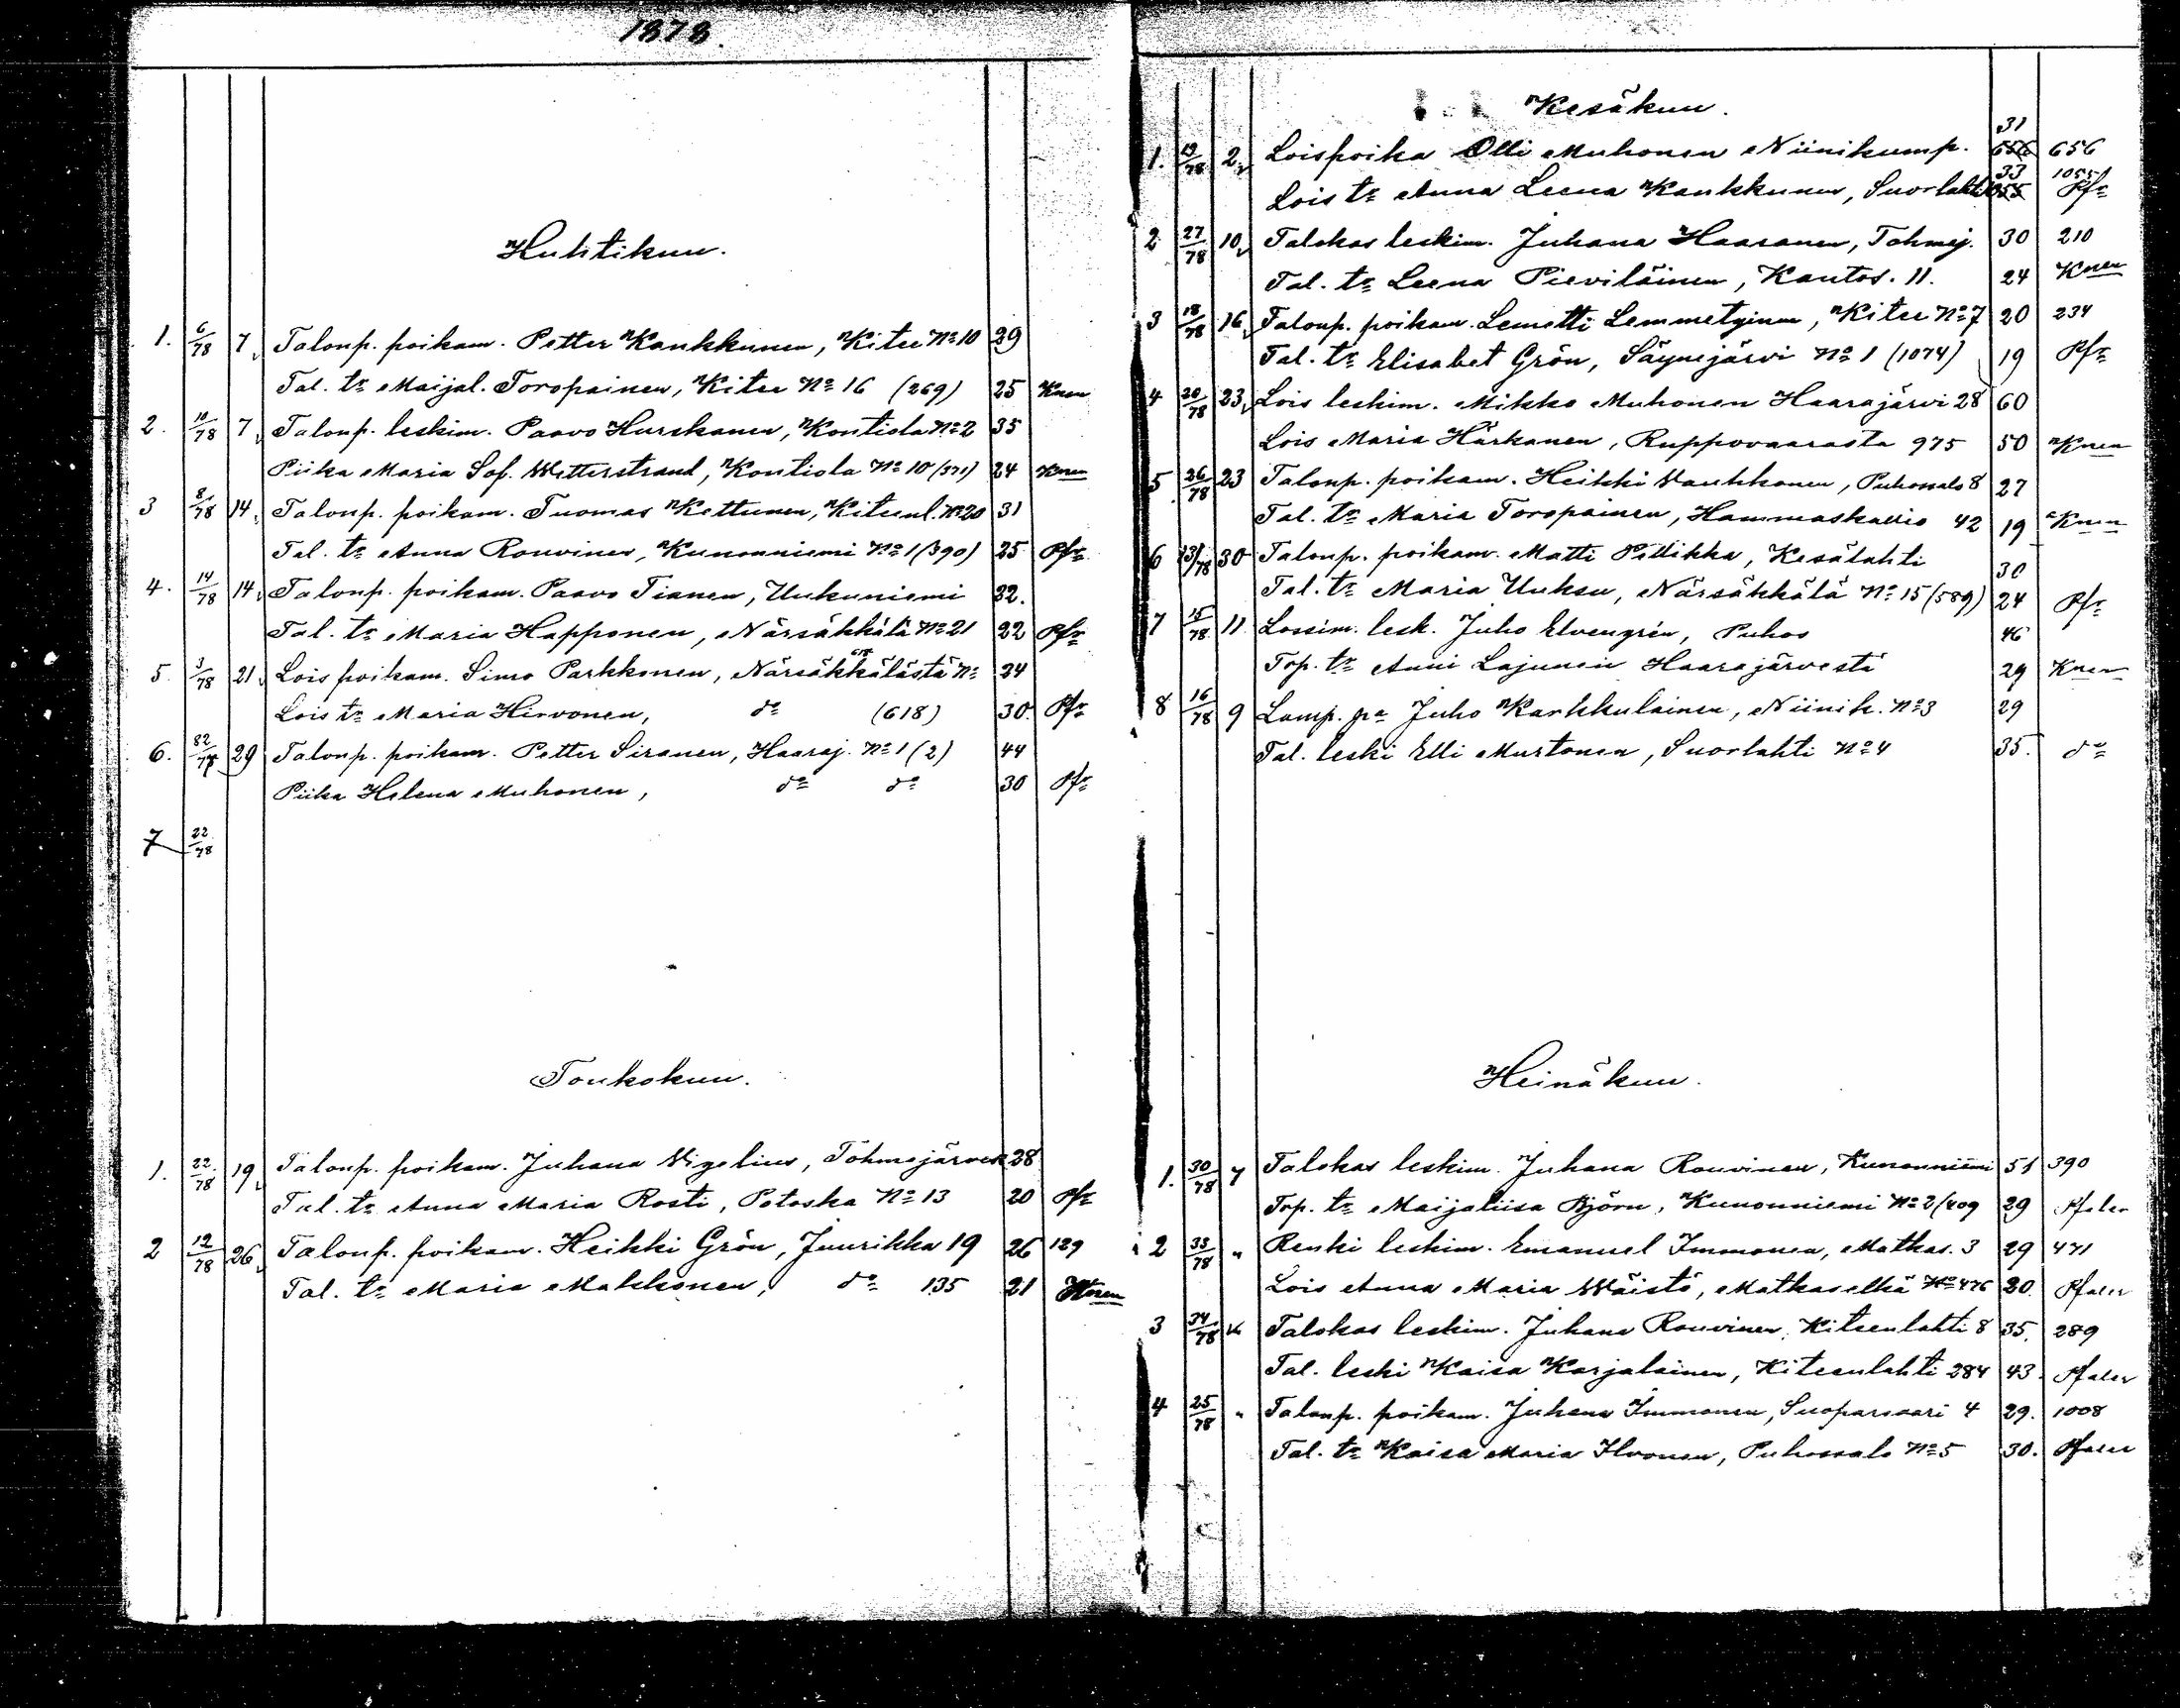 1878.
Huhtikuu.
1. 6/78 7 Talonp. poikam. Petter Kankkunen, Kitee No 10 29
Tal. tr Maijal. Toropainen, Kitee No 16 (269) 25 Knen
2. 10/78 7 Talonp. leskim. Paavo Hurskanen, Kontiola No 2 35
Piika Maria Sof. Wetterstrand, Kontiola No 10 (371) 24 Knen
3 8/78 14 Talonp. poikam. Tuomas Kettunen, Kiteenl. No 20 31
Tal. tr Anna Rouvinen, Kunonniemi No 1 (390) 25 Pfr
4. 14/78 14 Talonp. poikam. Paavo Tianen, Uukuniemi 32.
Tal. tr Maria Happonen, Närsäkkälä No 21 22 Pfr
5. 3/78 21 Lois poikam. Simo Parkkonen, Närsäkkälästä No 618 24
Lois tr Maria Hirvonen, do (618) 30. Pfr
6. 82/78 29 Talonp. poikam. Petter Siranen, Haaraj. No 1 (2) 44
Piika Helena Muhonen, do do 30 Pfr
7 22/78
Toukokuu.
1. 22/78 19 Talonp. poikam. Juhana Wigelius, Tohmajärven 28
Tal. tr Anna Maria Rosti, Potoska No 13 20 Pfr
2 12/78 26 Talonp. poikam. Heikki Grön, Juurikka 19 26 129
Tal. tr Maria Makkonen, do 135 21 Knen
Kesäkuu.
31
1. 19/78 2 Loispoika Olli Muhonen Niinikump. 656 656
33 1055
Lois tr Anna Leena Kankkunen, Suorlahti 1055 Pfr
2 27/78 10 Talokas leskim. Juhana Haaranen, Tohmaj. 30 210
Tal. tr Leena Pieviläinen, Kantos. 11. 24 Knen
3 18/78 16 Talonp. poikam. Lemetti Lemmetyinen, Kitee No 7 20 234
Tal. tr Elisabet Grön, Säynejärvi No 1 (1074) 19 Pfr
4 20/78 23 Lois leskim. Mikko Muhonen Haarajärvi 28 60
Lois Maria Härkänen, Ruppovaarasta 975 50 Knen
5 26/78 23 Talonp. poikam. Heikki Vauhkonen, Puhossalo 8 27
Tal. tr Maria Toropainen, Hammaskallio 42 19 Knen
6 13/78 30 Talonp. poikam. Matti Pellikka, Kesälahti 30
Tal. tr Maria Uuksu, Närsäkkälä No 15 (589) 24 Pfr
7 15/78 11 Lossim. lesk. Juho Elvengrén, Puhos 46
Torp. tr Anni Lajunen Haarajärvestä 29 Knen
8 16/78 9 Lamp. pa Juho Karkkulainen, Niinik. No 3 29
Tal. leski Elli Murtonen, Suorlahti No 4 35. do
Heinäkuu.
1. 30/78 7 Talokas leskim. Juhana Rouvinen, Kunonniemi 51 390
Trp. tr Maijaliisa Björn, Kunonniemi No 2 (409 29 Pfaler
2 35/78 " Renki leskim. Emanuel Immonen, Matkas. 3 29 471
Lois Anna Maria Wäistö, Matkaselkä No 476 20. Pfaler
3 34/78 Talokas leskim. Juhana Rouvinen, Kiteenlahti 8 35. 289
Tal. leski Kaisa Karjalainen, Kiteenlahti 284 43. Pfaler
4 25/78 " Talonp. poikam. Juhana Immonen, Suoparsaari 4 29. 1008
Tal. tr Kaisa Maria Ilvonen, Puhossalo No 5 30. Pfaler